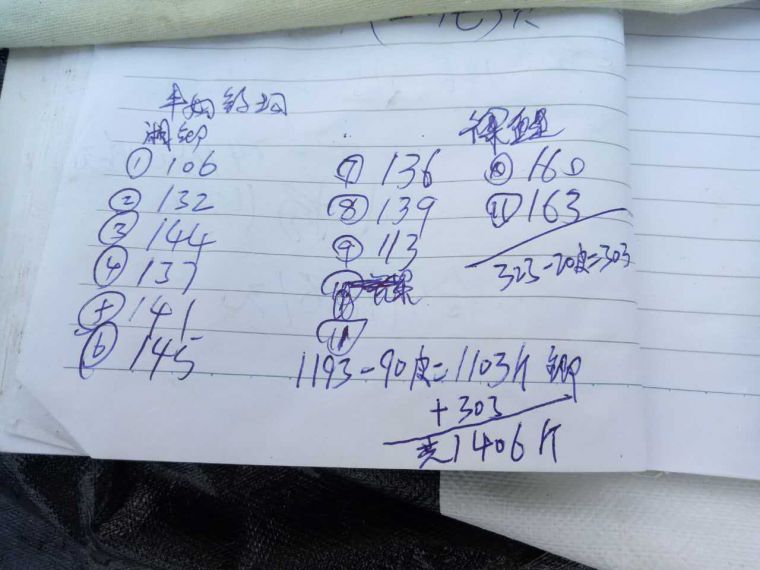 湘鲫
① 106 ⑦ 136 ⑩ 160
② 132 ⑧ 139 ⑪ 163
③ 144 ⑨ 113 323-20皮=303
④ 137
⑤ 141
⑥ 145 ⑪
1193-90皮=1103斤 鲫
+303
共1406斤